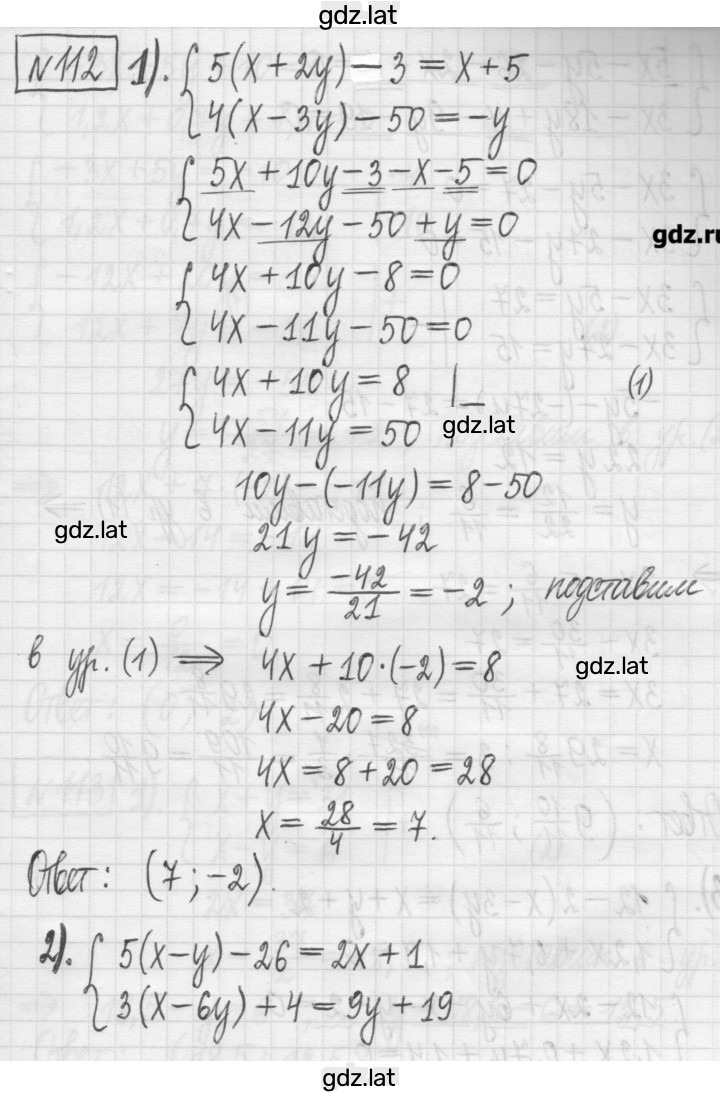 gdz.lat
№112 1). { 5(x+2y)-3=x+5
4(x-3y)-50=-y
{ 5x+10y-3-x-5=0
4x-12y-50+y=0
gdz.ru
{ 4x+10y-8=0
4x-11y-50=0
{ 4x+10y=8 |_ (1)
4x-11y=50
gdz.lat
10y-(-11y)=8-50
gdz.lat
21y=-42
y=\frac{-42}{21}=-2; подставим
в ур. (1) ⇒ 4x+10·(-2)=8
gdz.lat
4x-20=8
4x=8+20=28
x=\frac{28}{4}=7.
Ответ: (7;-2).
2). { 5(x-y)-26=2x+1
3(x-6y)+4=9y+19
gdz.lat